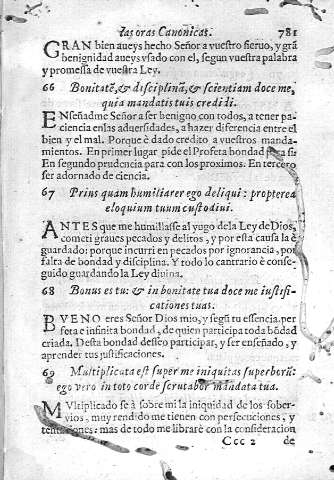 las oras Canonicas. 781
GRAN bien aueys hecho Señor a vuestro sieruo, y grã
benignidad aueys vsado con el, segun vuestra palabra
y promessa de vuestra Ley.
66 Bonitatẽ, & disciplinã, & scientiam doce me,
quia mandatis tuis credidi.
ENseñadme Señor a ser benigno con todos, a tener pa
ciencia en las aduersidades, a hazer diferencia entre el
bien y el mal. Porque è dado credito a vuestros manda-
mientos. En primer lugar pide el Profeta bondad para si:
En segundo prudencia para con los proximos. En tercero
ser adornado de ciencia.
67 Prius quam humiliarer ego deliqui: propterea
eloquium tuum custodiui.
ANTES que me humillasse al yugo de la Ley de Dios,
cometi graues pecados y delitos, y por esta causa la è
guardado: porque incurri en pecados por ignorancia, por
falta de bondad y disciplina. Y todo lo contrario è conse-
guido guardando la Ley diuina.
68 Bonus es tu: & in bonitate tua doce me iustifi-
cationes tuas.
BVENO eres Señor Dios mio, y segũ tu essencia, per
feta e infinita bondad, de quien participa toda bõdad
criada. Desta bondad desseo participar, y ser enseñado, y
aprender tus justificaciones.
69 Multiplicata est super me iniquitas superborũ:
ego vero in toto corde scrutabor mandata tua.
MVltiplicado se à sobre mi la iniquidad de los sober-
vios, muy rendido me tienen con persecuciones, y
tentaciones: mas de todo me librarè con la consideracion
Ccc 2 de